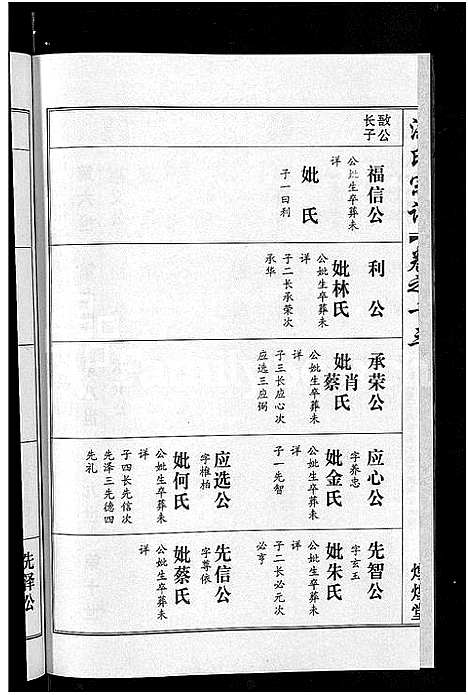 敔公
长子
福信公
公妣生卒葬未
详
妣氏
子一曰利
利公
妣林氏
公妣生卒葬未
详
子二长承荣次
承华
承荣公
妣肖氏
蔡氏
公妣生卒葬未
详
子三长应心次
应选三应弼
应心公
字养忠
妣金氏
公妣生卒葬未
详
子一先智
应选公
字惟柏
妣何氏
公妣生卒葬未
详
子四长先信次
先泽三先德四
先礼
先智公
字玄玉
妣朱氏
公妣生卒葬未
详
子二长必元次
必亨
先信公
字尊依
妣蔡氏
公妣生卒葬未
详
先泽公